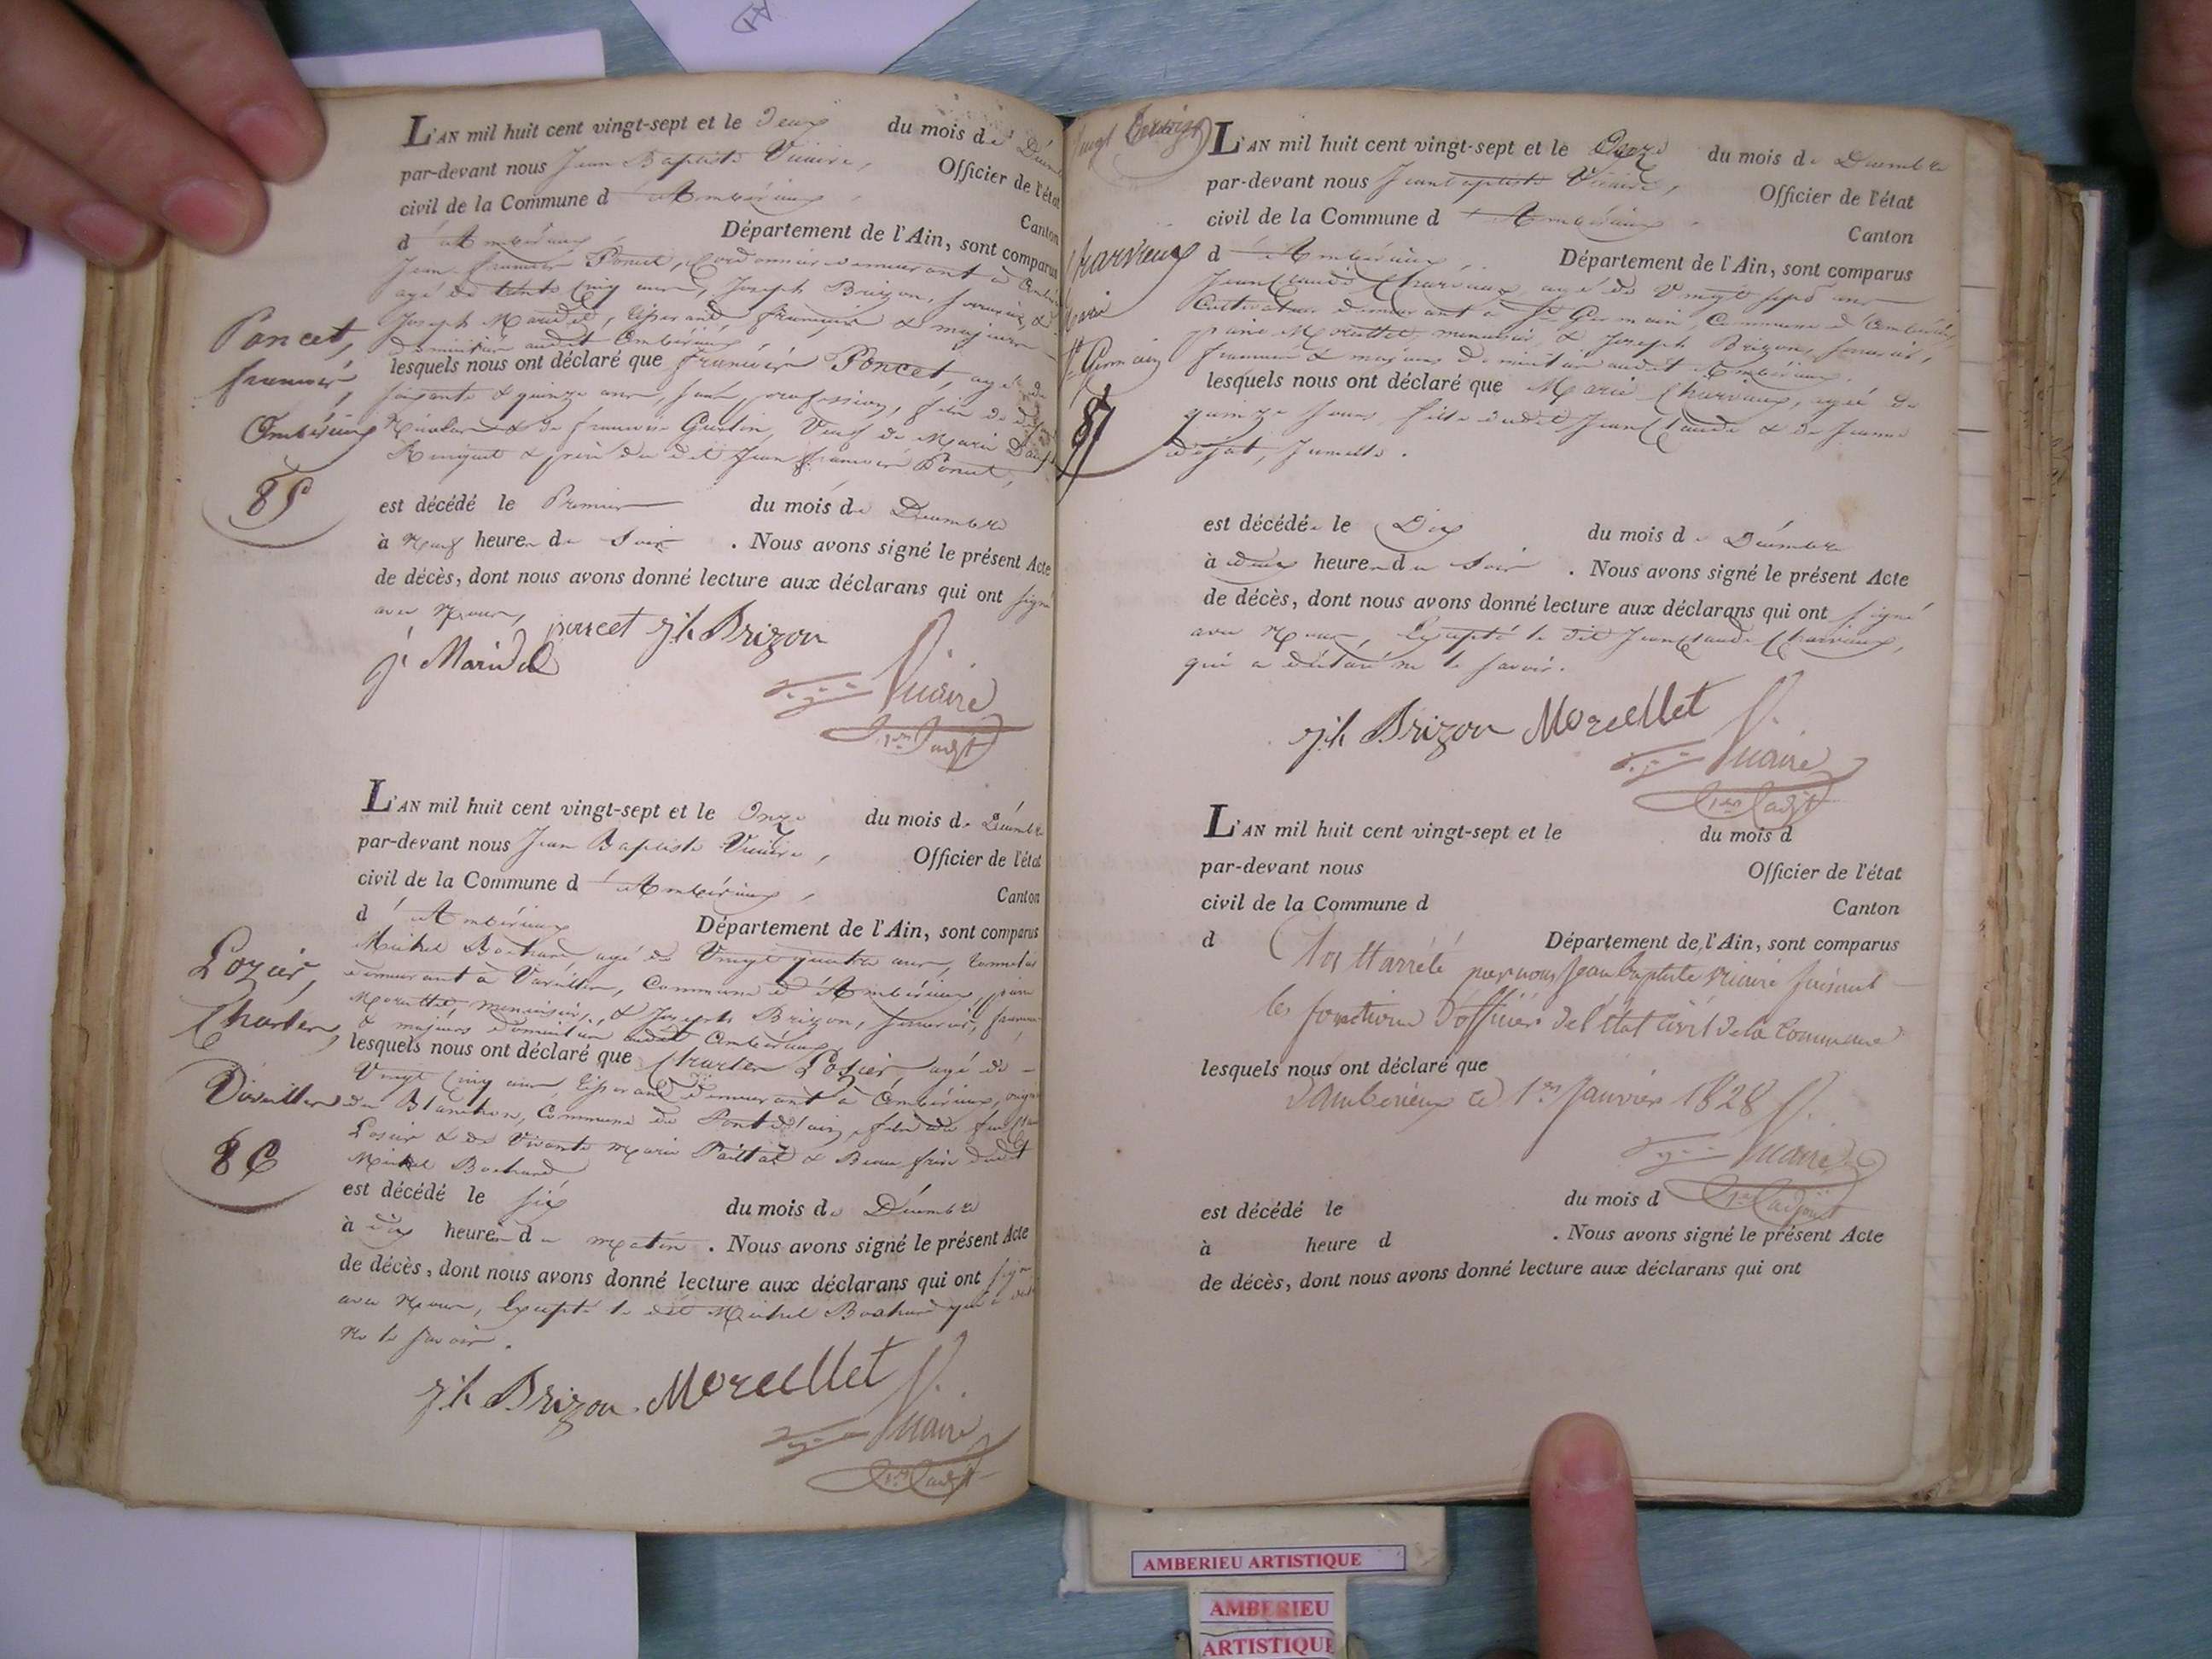 L'AN mil huit cent vingt-sept et le Deux du mois de
par-devant nous Jean Baptiste Vicaire, Officier de l'état
civil de la Commune d'Ambérieux, Canton
d'Ambérieux Département de l'Ain, sont comparus
Jean François Poncet, Cordonnier demeurant à
agé de trente Cinq ans, Joseph Brizon, &
Joseph Maridet, français & majeurs
audit Ambérieux
Poncet,
françois,
Ambérieux
85
lesquels nous ont déclaré que françois Poncet, agé de
soixante & quinze ans, sans profession, fils de
Nicolas & de françoise Veuf de Marie
& père du dit Jean françois Poncet,
est décédé le Premier du mois de Décembre
à Neuf heures du Soir. Nous avons signé le présent Acte
de décès, dont nous avons donné lecture aux déclarans qui ont signé
avec Nous,
poncet jh Brizon
j Maridet
Vicaire
L'AN mil huit cent vingt-sept et le Onze du mois de Décembre
par-devant nous Jean Baptiste Vicaire, Officier de l'état
civil de la Commune d'Ambérieux, Canton
d'Ambérieux Département de l'Ain, sont comparus
Michel Bochard agé de Vingt quatre ans,
demeurant à Vareilles, Commune d'Ambérieux,
menuisier, & Joseph Brizon,
& majeurs audit Ambérieux,
Lozier,
Charles,
Vareilles
86
lesquels nous ont déclaré que Charles Lozier, agé de
Vingt Cinq ans demeurant à Ambérieux,
de Blanchon, Commune de Pont d'ain, fils de feu
Lozier & de Vivante Marie & Beau frère dudit
Michel Bochard
est décédé le six du mois de Décembre
à dix heures du matin. Nous avons signé le présent Acte
de décès, dont nous avons donné lecture aux déclarans qui ont signé
avec Nous, Excepté le dit Michel Bochard qui a
ne le savoir.
jh Brizon. Morellet
Vicaire
L'AN mil huit cent vingt-sept et le Onze du mois de Décembre
par-devant nous Jean baptiste Vicaire, Officier de l'état
civil de la Commune d'Ambérieux, Canton
d'Ambérieux, Département de l'Ain, sont comparus
Jean Claude Charvieux, agé de Vingt sept ans
Cultivateur demeurant à St Germain, Commune d'Ambérieux,
menuisier, & Joseph Brizon,
français & majeurs audit Ambérieux.
Charvieux
Marie
St Germain
87
lesquels nous ont déclaré que Marie Charvieux, agée de
quinze Jours, fille dudit Jean Claude & de Jeanne
Jumelle.
est décédée le Dix du mois de Décembre
à deux heures du Soir. Nous avons signé le présent Acte
de décès, dont nous avons donné lecture aux déclarans qui ont signé
avec Nous, Excepté le dit Jean Claude Charvieux,
qui a déclaré ne le savoir.
jh Brizon Morellet
Vicaire
L'AN mil huit cent vingt-sept et le du mois d
par-devant nous Officier de l'état
civil de la Commune d Canton
d Département de l'Ain, sont comparus
Clos et arrêté par nous Jean baptiste vicaire faisant
les fonctions d'officier de l'état civil de la Commune
lesquels nous ont déclaré que
d'ambérieux ce 1er Janvier 1828
Vicaire
est décédé le du mois d
à heure d . Nous avons signé le présent Acte
de décès, dont nous avons donné lecture aux déclarans qui ont
AMBERIEU ARTISTIQUE
AMBERIEU
ARTISTIQUE